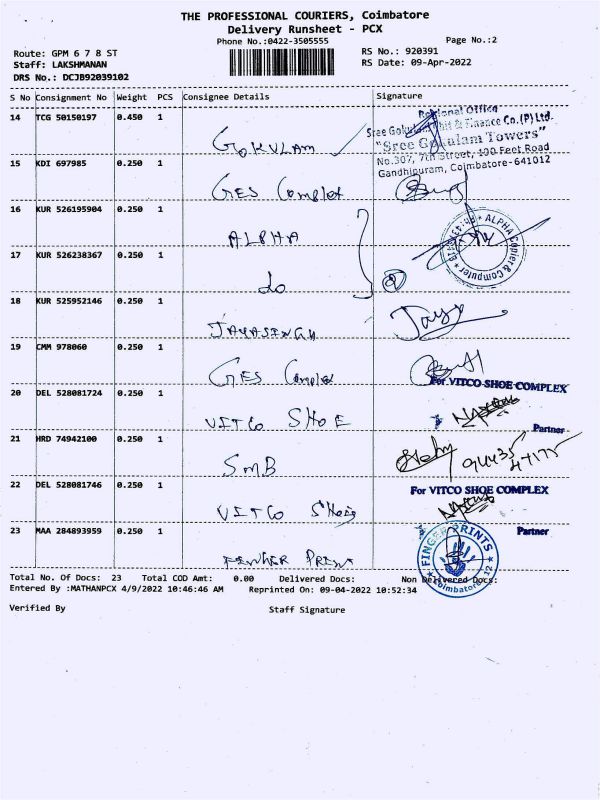 THE PROFESSIONAL COURIERS, Coimbatore
Delivery Runsheet - PCX
Phone No.:0422-3505555
Page No.:2
Route: GPM 6 7 8 ST
RS No.: 920391
Staff: LAKSHMANAN
RS Date: 09-Apr-2022
DRS No.: DCJB92039102
S No Consignment No Weight PCS Consignee Details Signature
14 TCG 50150197 0.450 1
GOKULAM
Regional Office
Sree Gokulam Chit & Finance Co.(P) Ltd.
"Sree Gokulam Towers"
No.307, 7th Street, 100 Feet Road
Gandhipuram, Coimbatore-641012
15 KDI 697985 0.250 1
GES Complex
16 KUR 526195904 0.250 1
ALPHA
ALPHA Copier & Computer
17 KUR 526238367 0.250 1
do
2
18 KUR 525952146 0.250 1
JAYASINGH
Jaya
19 CMM 978060 0.250 1
GES Complex
For VITCO SHOE COMPLEX
20 DEL 528081724 0.250 1
VITCO SHOE
Partner
21 HRD 74942100 0.250 1
SMB
94435
47175
22 DEL 528081746 0.250 1
VITCO Shoe
For VITCO SHOE COMPLEX
Partner
23 MAA 284893959 0.250 1
FINGER PRINT
FINGER PRINTS
Coimbatore-12
Total No. Of Docs: 23 Total COD Amt: 0.00 Delivered Docs: Non Delivered Docs:
Entered By :MATHANPCX 4/9/2022 10:46:46 AM Reprinted On: 09-04-2022 10:52:34
Verified By Staff Signature